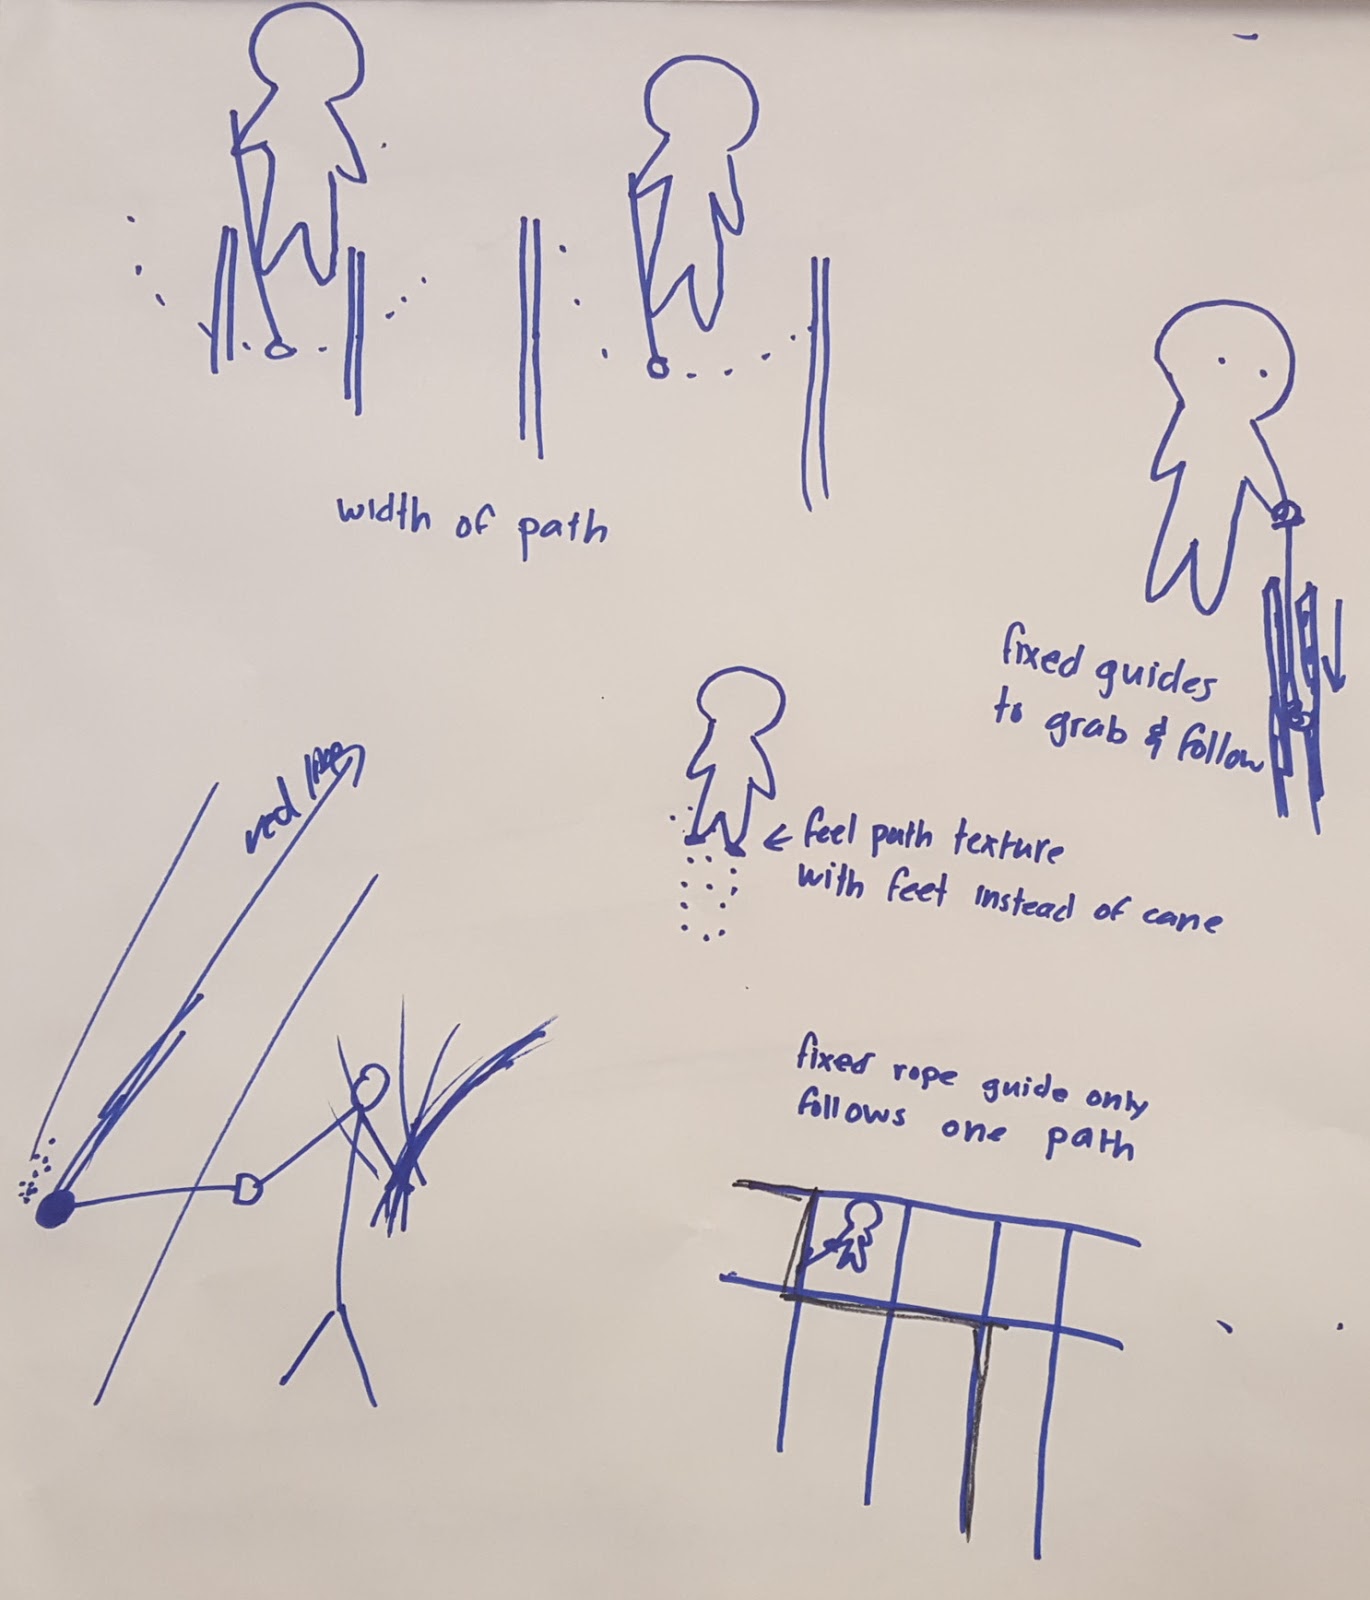 width of path
fixed guides
to grab & follow
feel path texture
with feet instead of cane
red
fixed rope guide only
follows one path